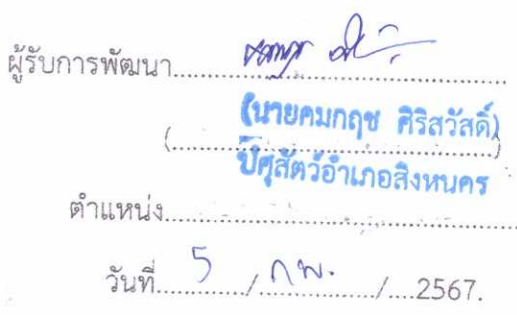 ผู้รับการพัฒนา........................................
(นายคมกฤช ศิริสวัสดิ์)
(........................................)
ปศุสัตว์อำเภอสิงหนคร
ตำแหน่ง........................................
วันที่.....5...../..กพ.........../....2567.